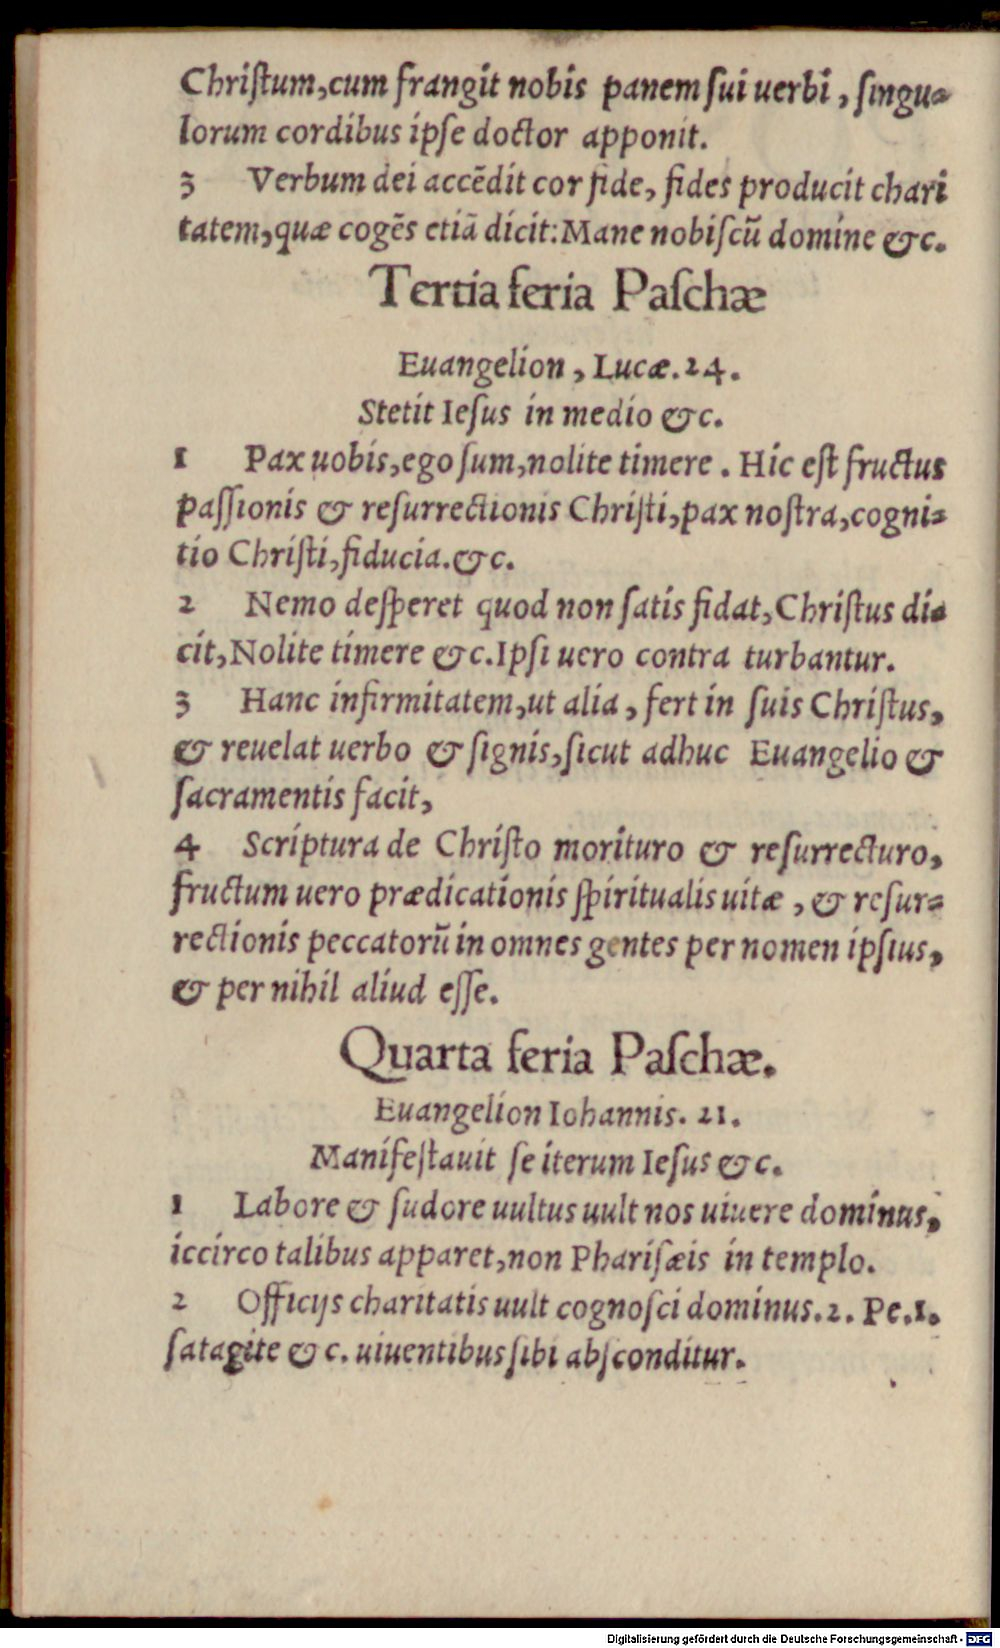 Chriſtum,cum frangit nobis panem ſui uerbi, ſingu-
lorum cordibus ipſe doctor apponit.
3 Verbum dei accẽdit cor fide, fides producit chari
tatem,quæ cogẽs etiã dicit:Mane nobiſcũ domine &c.
Tertia feria Paſchæ
Euangelion, Lucæ.24.
Stetit Ieſus in medio &c.
1 Pax uobis,ego ſum,nolite timere. Hic eſt fructus
paſſionis & reſurrectionis Chriſti,pax noſtra,cogni-
tio Chriſti,fiducia.&c.
2 Nemo deſperet quod non ſatis fidat,Chriſtus di-
cit,Nolite timere &c.Ipſi uero contra turbantur.
3 Hanc infirmitatem,ut alia, fert in ſuis Chriſtus,
& reuelat uerbo & ſignis,ſicut adhuc Euangelio &
ſacramentis facit,
4 Scriptura de Chriſto morituro & reſurrecturo,
fructum uero prædicationis ſpiritualis uitæ, & reſur-
rectionis peccatorũ in omnes gentes per nomen ipſius,
& per nihil aliud eſſe.
Quarta feria Paſchæ.
Euangelion Iohannis. 21.
Manifeſtauit ſe iterum Ieſus &c.
1 Labore & ſudore uultus uult nos uiuere dominus,
iccirco talibus apparet,non Phariſæis in templo.
2 Officijs charitatis uult cognoſci dominus.2. Pe.1.
ſatagite &c. uiuentibus ſibi abſconditur.
Digitalisierung gefördert durch die Deutsche Forschungsgemeinschaft - DFG